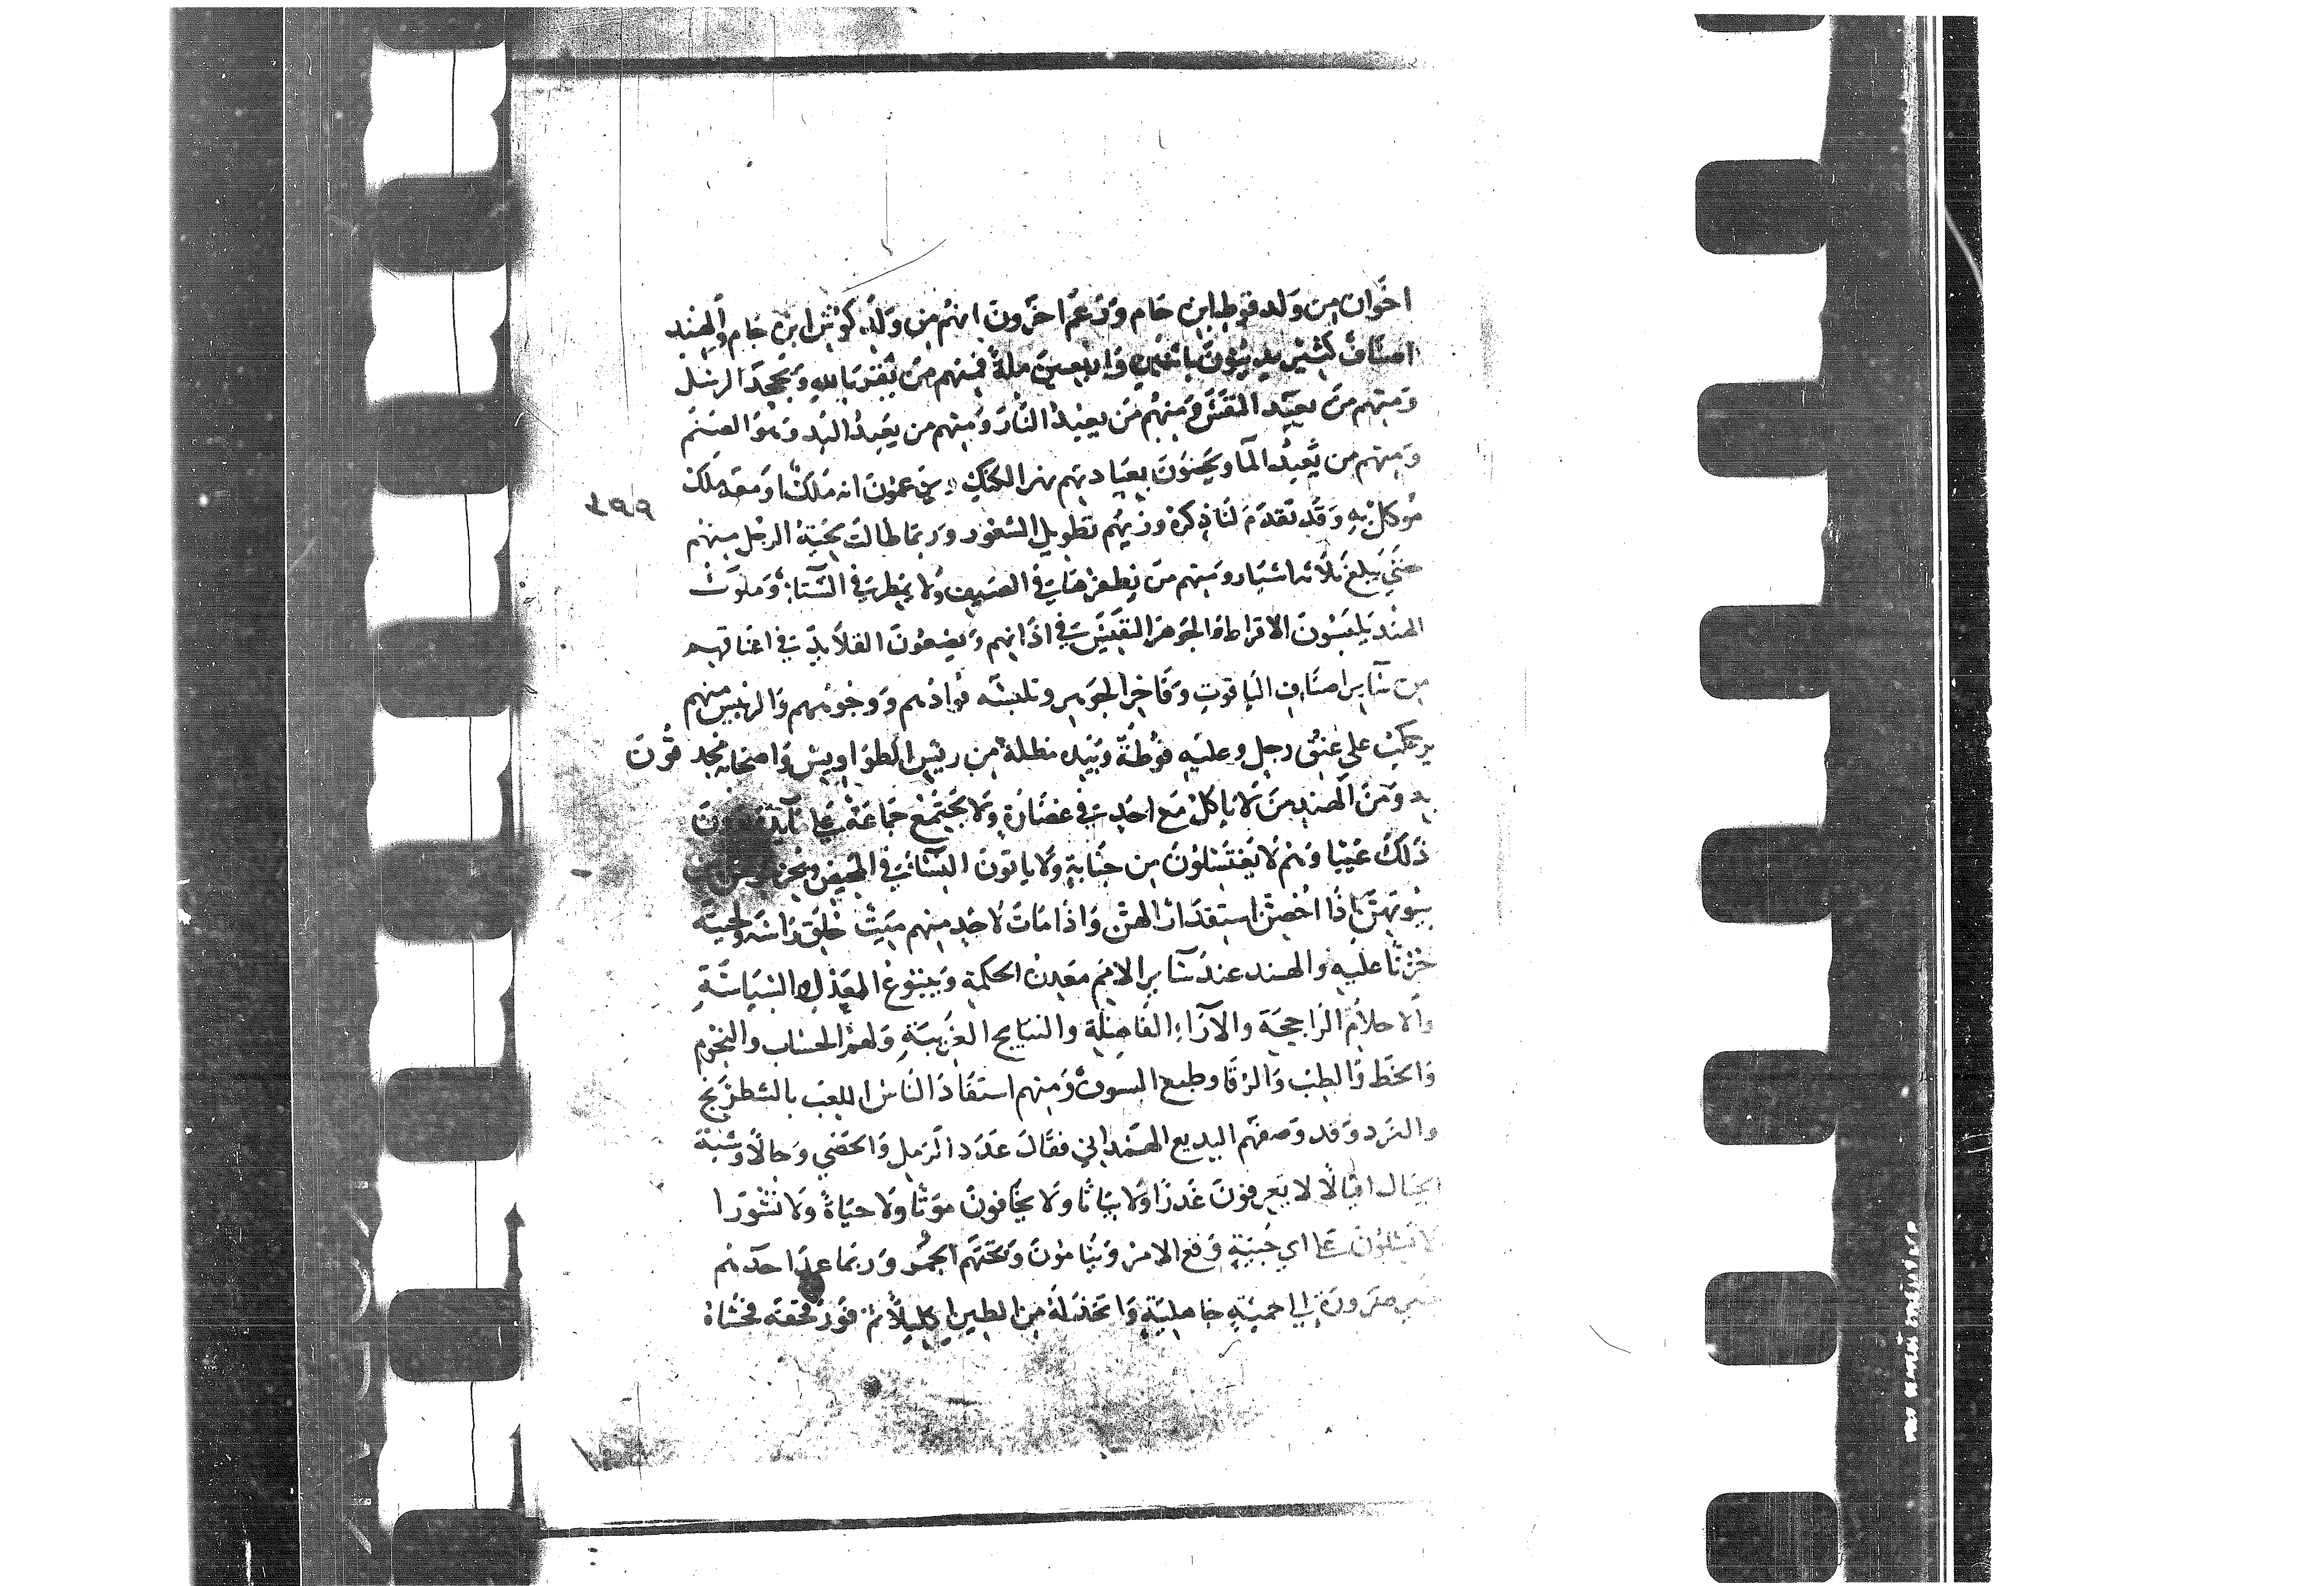 اخوان من ولد قوط ابن حام وزعم اخرون انهم من ولد كوش ابن حام والهند
اصناف كثير يدينون باثنين واربعين ملة فمنهم من يقر بالله ويجحد الرسل
ومنهم من يعبد القمر ومنهم من يعبد النار ومنهم من يعبد البد وهو الصنم
ومنهم من يعبد الما ويحبون بعبادتهم نهر الكنك يزعمون انه ملك او معه ملك
موكل به وقد تقدم لنا ذكره وزيهم تطويل الشعور وربما طالت لحية الرجل منهم
حتي يبلغ ثلاثه اشبار ومنهم من في الصيف ولا في الشتا وملوك
الهند يلبسون الاقراط والجوهر النفيس في اذانهم ويضعون القلايد في اعناقهم
من ساير اصناف الياقوت وفاخر الجوهر وتلبسه قوادهم ووجوههم والرييس منهم
يركب على عنق رجل وعليه فوطة وبيده مظلة من ريش الطواويس واصحابه محدقون
به ومن الهند من لا ياكل مع احد في غضارة ولا يجتمع جماعة على مآيدة
ذلك عيبا وهم لا يغتسلون من جنابة ولا ياتون النسا في الحيض
بيوتهن اذا استقذارا لهن واذا مات لاحد منهم ميت حلق راسه ولحيته
حزنا عليه والهند عند ساير الامم معدن الحكمة وينبوع العدل والسياسة
والاحلام الراجحة والاراء الفاضلة والنتايج الغريبة ولهم الحساب والنجوم
والخط والطب والرقا وطبع السيوف ومنهم استفاد الناس اللعب بالشطرنج
والنرد وقد وصفهم البديع الهمداني فقال عدد الرمل والحصى وحالا وشبه
الجبال افيالا لا يعرفون غدرا ولا بياتا ولا يخافون موتا ولا حياة ولا نشورا
لا يبالون على اي جنبيه وقع الامر وينامون وتحتهم الجمر وربما عمد احدهم
لغير ضرورة الي حمية جاهلية واتخذ له من الطين اكليلا ثم قور قحفه فحشاه
١٩٩